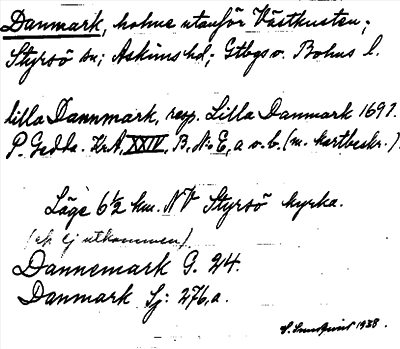 Danmark, holme utanför Västkusten;
Styrsö sn; Askims hd; Gtbgs o. Bohus l.
lilla Dannmark, resp. Lilla Danmark 1697.
P. Gedda. KrA, XXIV, B, N:o E, a o. b. (m. kartbeskr.).
Läge 6½ km. NV Styrsö kyrka.
(ek. ej utkommen)
Dannemark G. 24.
Danmark Sj: 276, a.
1938.